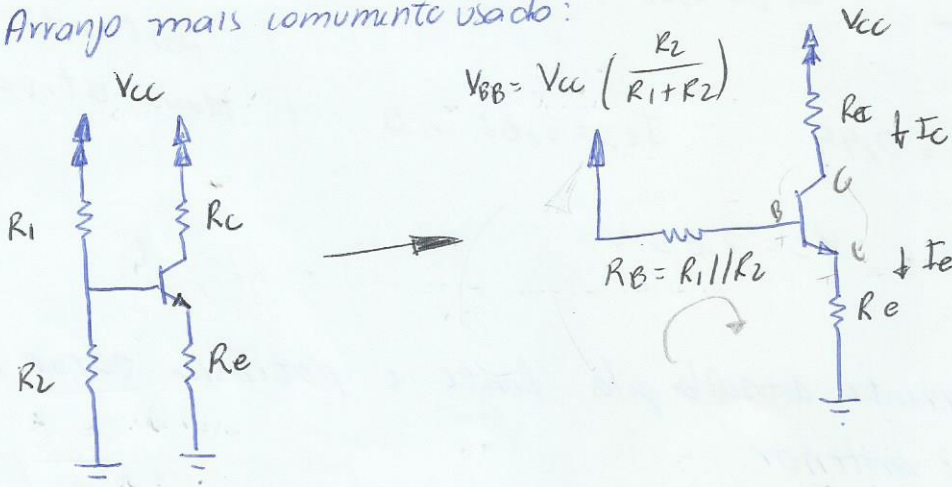 Arranjo mais comumente usado:
Vcc
R1
Rc
R2
Re
VBB = Vcc (R2 / R1+R2)
Vcc
Rc ↓ Ic
C
B
RB = R1//R2
↓ Ie
Re